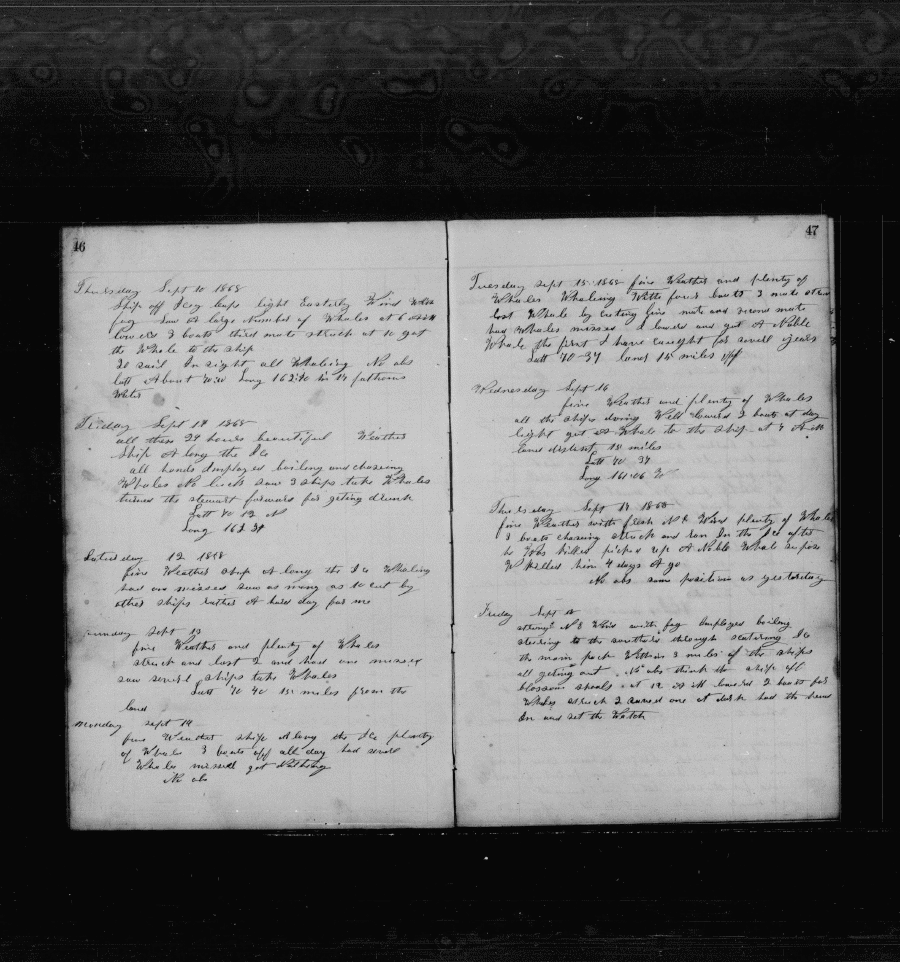 46
Thursday Sept 10 1868
Ship off Icey Cape light Easterly Wind With
fog Saw A large Number of Whales at 6 A M
lowered 3 boats third mate struck at 10 got
the Whale to the ship
20 sail In sight all Whaleing No obs
latt About Long 162:40 in 14 fathoms
Water
Friday Sept 11 1868
all these 24 hours beautifull Weather
Ship A long the Ice
all hands Employed boiling and chasing
Whales No luck saw 3 ships take Whales
turned the stewart forward for geting drunk
Latt 70 12 N
Long 162.34
Saturday 12 1868
fine Weather ship A long the Ice Whaling
had one missed saw as many as 10 cut by
other ships rather A hard day for me
Sunday Sept 13
fine Weather and plenty of Whales
struck and lost 2 and had one missed
saw severl ships take Whales
Latt 70 40 15 miles from the
land
Monday Sept 14
fine Weather ship Along the Ice plenty
of Whales 3 boats off all day had severl
Whales missed got Nothing
No obs
47
Tuesday Sept 15 1868 fine Weather and plenty of
Whales Whaleing With four boats 3 mate
lost Whale by cutting line mate and second mate
had Whales missed I lowerd and got A Noble
Whale the first I have caught for severl years
Latt 70-37 land 15 miles off
Wednesday Sept 16
fine Weather and plenty of Whales
all the ships doing Well lowerd 2 boats at day
light got A Whale to the ship at 7 A M
land distant 15 miles
Latt 70 37
Long 161.06 W
Thursday Sept 17 1868
fine Weather with fresh N E Wind plenty of Whales
3 boats chasing struck and ran In the Ice after
he Was killed picked up A Noble Whale supose
W killed him 4 days A go
No obs same position as yesterday
Friday Sept 18
strong N E Wind with fog Employed boiling
steering to the through scatering Ice
the main pack Within 3 miles of the ships
all geting out No obs think the ship off
blossom shoals at 12 A M lowerd 2 boats for
Whales struck 2 saved one at dark had the head
In and set the Watch